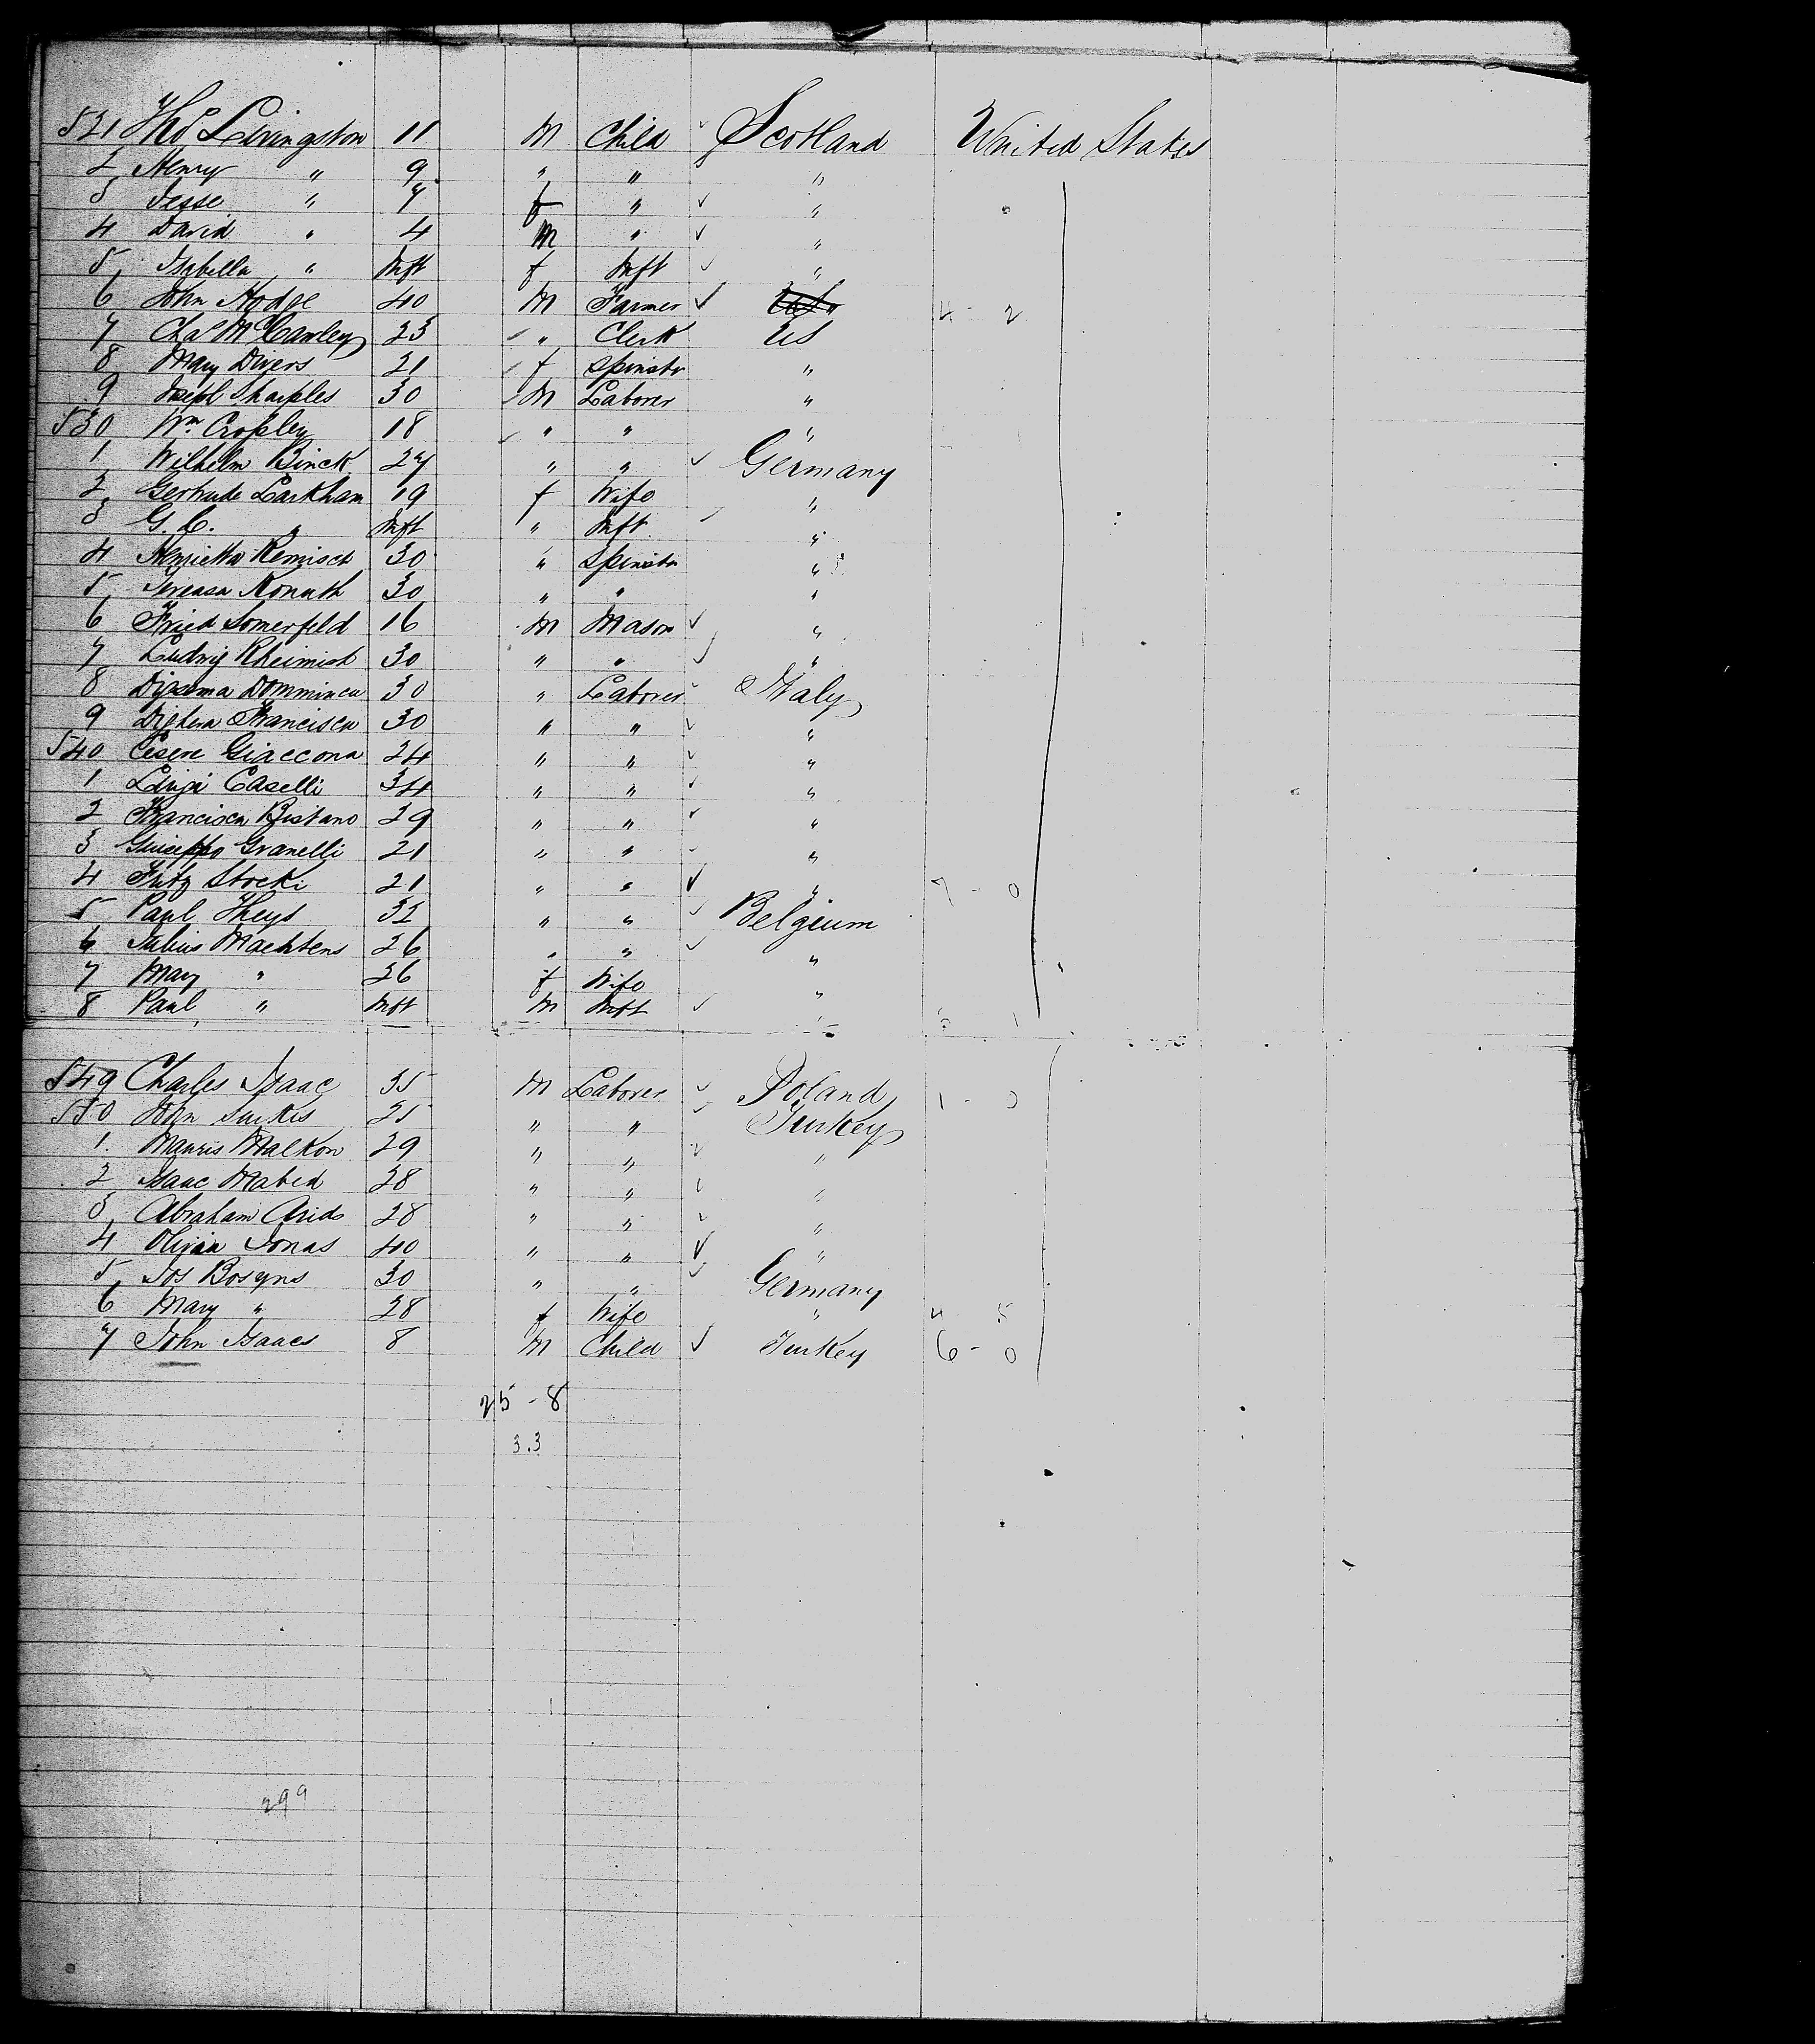 521 Thos Livingston 11 M Child Scotland United States
2 Henry " 9 " " "
3 Jesse " 7 f " "
4 David " 4 M " "
5 Isabella " Inft f Inft "
6 John Hodge 40 M Farmer 4 - 2
7 Chas McCawley 23 " Clerk US
8 Mary Divers 21 f Spinstr "
9 Joseph Sharples 30 M Laborer "
530 Wm Cropley 18 " " "
1 Wilhelm Binck 27 " " Germany
2 Gertrude Larkham 19 f Wife "
3 G. C. " Inft " Inft "
4 Henrietta Remisch 30 " Spinstr "
5 Tereasa Konath 30 " " "
6 Fried Somerfeld 16 M Mason "
7 Ludwig Rheimish 30 " " "
8 Domminca 30 " Laborer Italy
9 Dighera Francisca 30 " " "
540 Cesere Giaccona 24 " " "
1 Luigi Caselli 34 " " "
2 Francisca Bistano 29 " " "
3 Guiseppo Granelli 21 " " "
4 Fritz Stocki 21 " " " 7 - 0
5 Paul Theys 32 " " Belgium
6 Julius Machtens 26 " " "
7 Mary " 26 f Wife "
8 Paul " Inft M Inft "
549 Charles Isaac 35 M Laborer Poland 1 - 0
550 John Surkis 25 " " Turkey
1 Mauris Malkon 29 " " "
2 Isaac Mabed 28 " " "
3 Abraham Arids 28 " " "
4 Olivia Jonas 40 " " "
5 Jos Bosyns 30 " " Germany
6 Mary " 28 f Wife "
7 John Isaacs 8 M Child Turkey 6 - 0
25 - 8
3.3
299